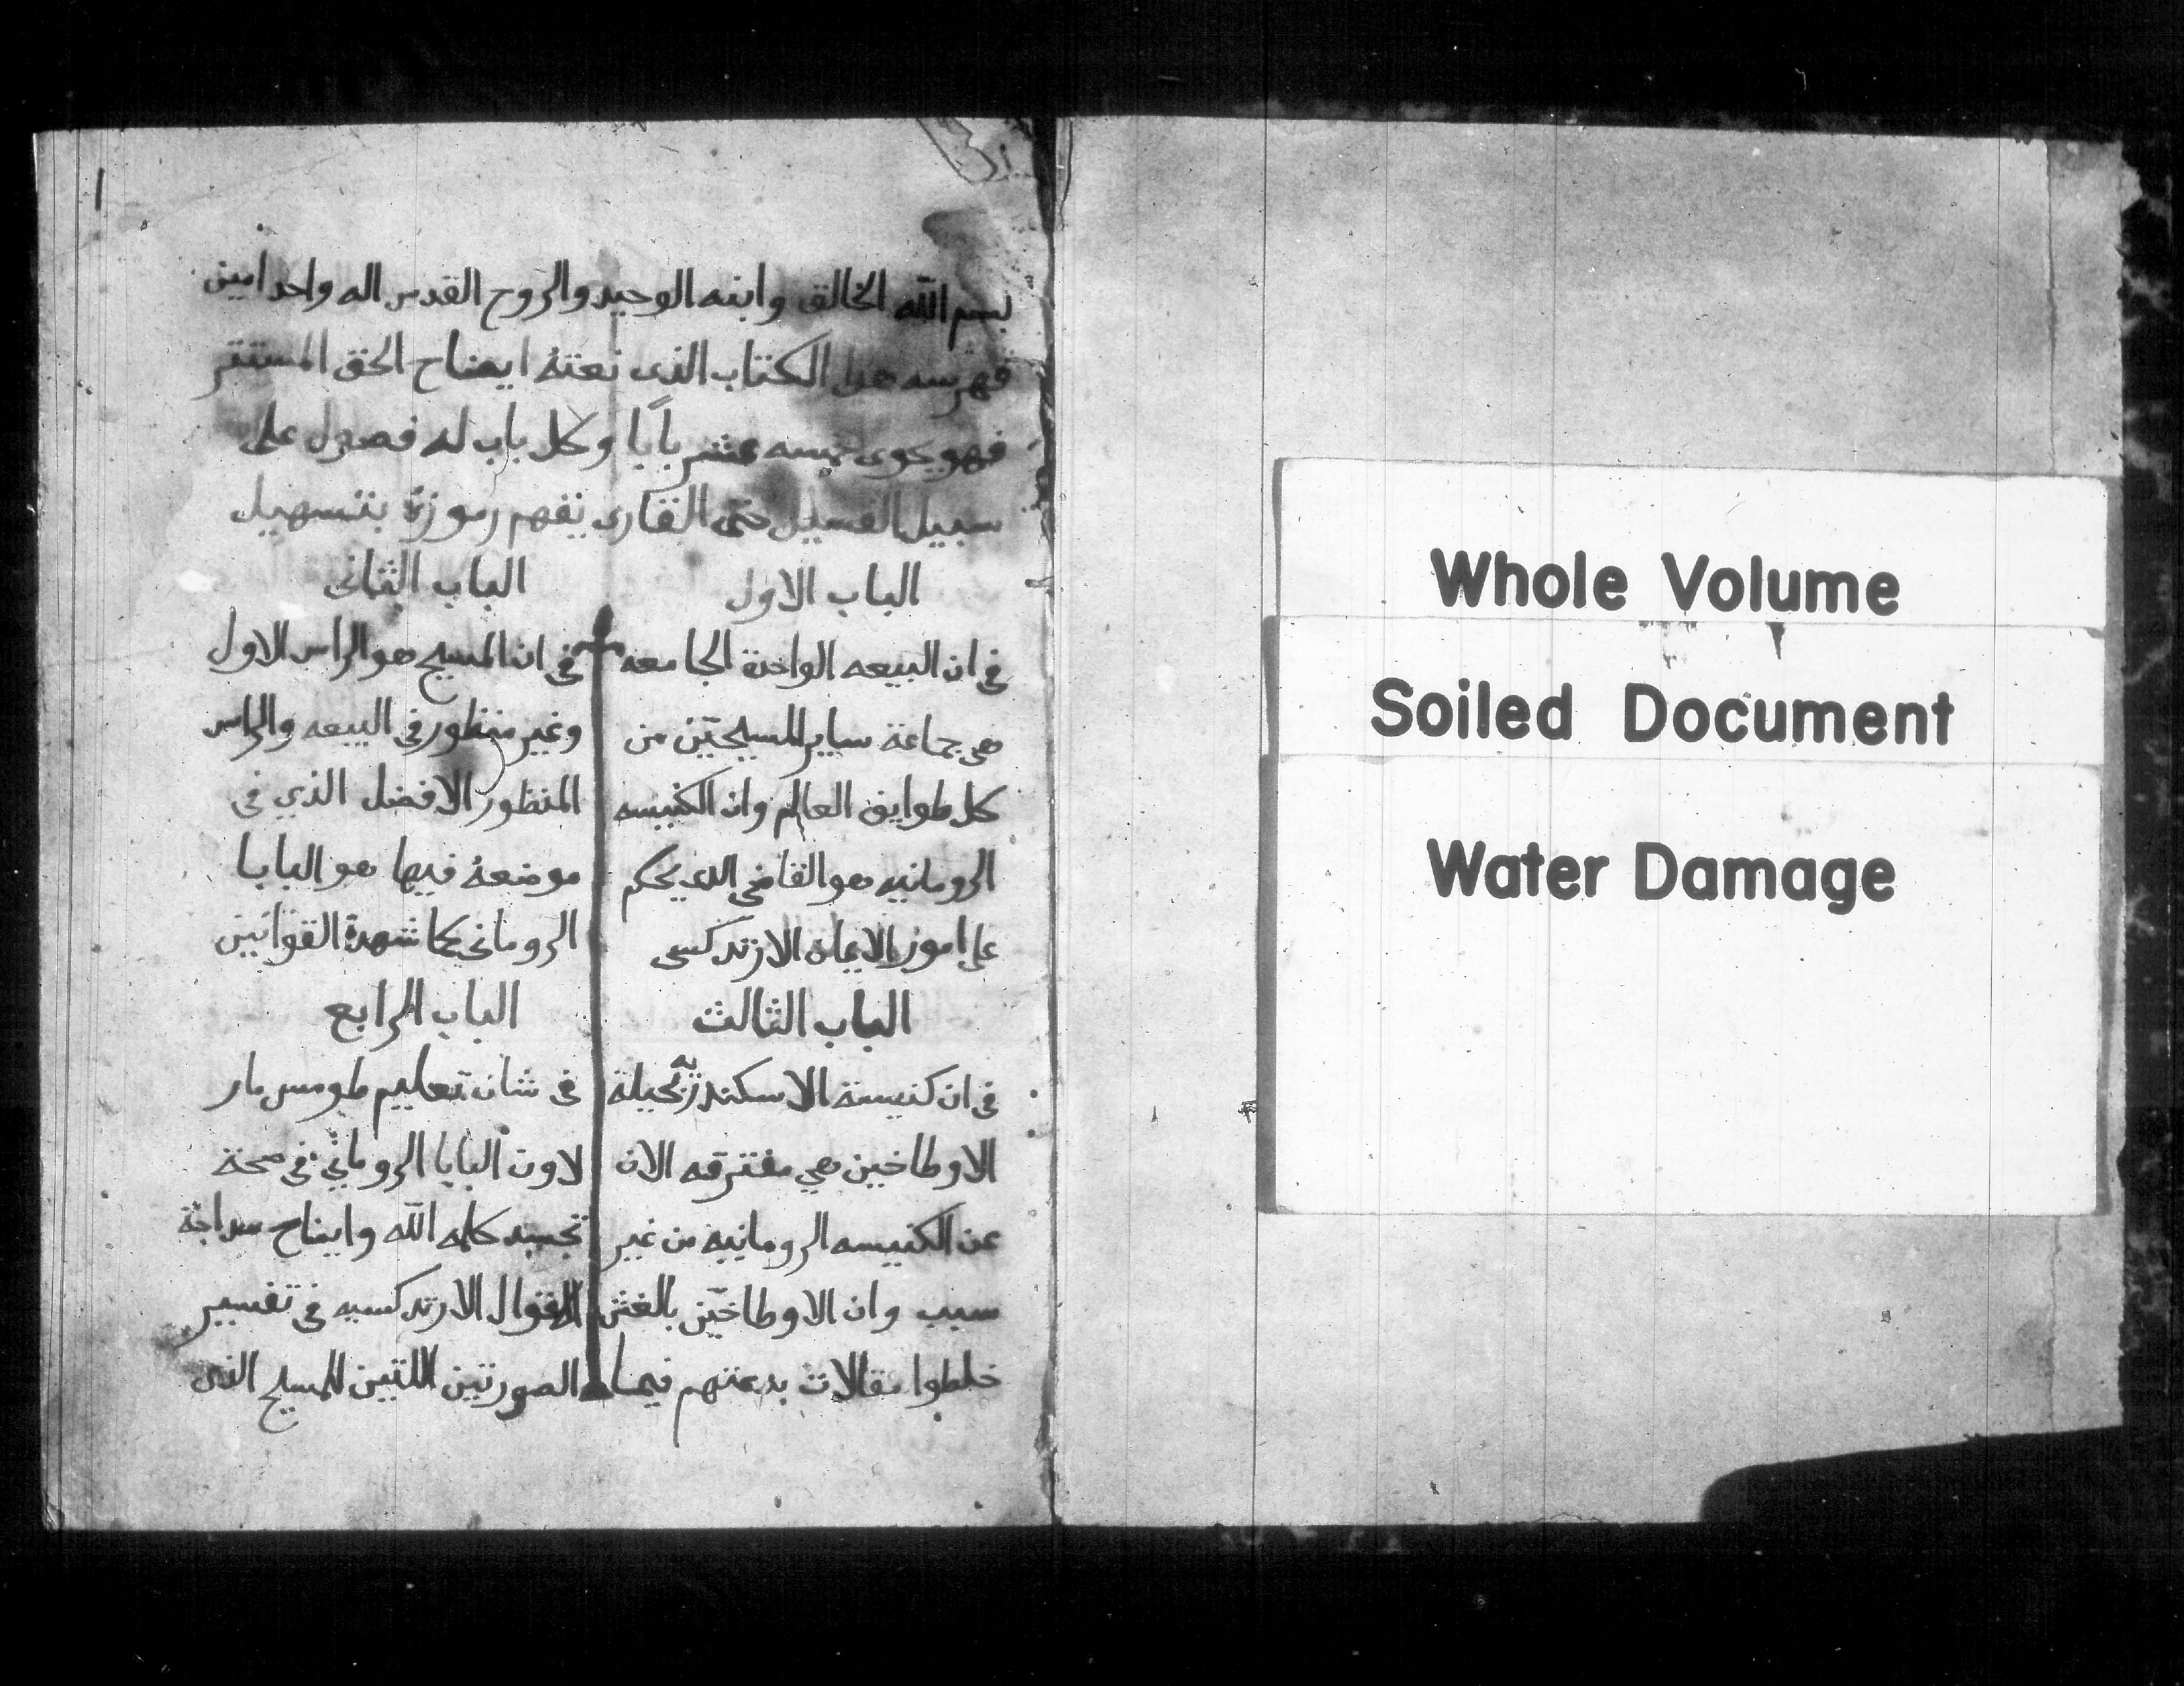 بسم الله الخالق وابنه الوحيد والروح القدس اله واحد امين
فهرسه هدا الكتاب الذى نعته ايضاح الحق المستتر
فهو يحوى خمسه عشر بابًا وكل باب له فصول على
سبيل حتى القارى يفهم رموزه بتسهيل
الباب الاول
فى ان البيعه الواحدة الجامعه
هى جماعة ساير المسيحيّين من
كل طوايف العالم وان الكنيسه
الرومانيه هو القاضى الدى يحكم
على امور الايمان الارتدكسى
الباب الثانى
فى ان المسيح هو الراس الاول
وغير منظور فى البيعه والراس
المنظور الافضل الذي فى
موضعهُ فيها هو البابا
الرومانى كما شهدة القوانين
الباب الثالث
فى ان كنيسة الاسكندريه بحيلة
الاوطاخيين هي مفترقه الان
عن الكنيسه الرومانيه من غير
سبب وان الاوطاخيّن بالغش
خلطوا مقالات بدعتهم فيما
الباب الرابع
فى شان تعليم طومس مار
لاون البابا الروماني فى صحة
تجسد كلمه الله وايضاح سداجة
الاقوال الارتدكسيه فى تفسير
الصورتين اللتين للمسيح الذى
١
Whole Volume
Soiled Document
Water Damage